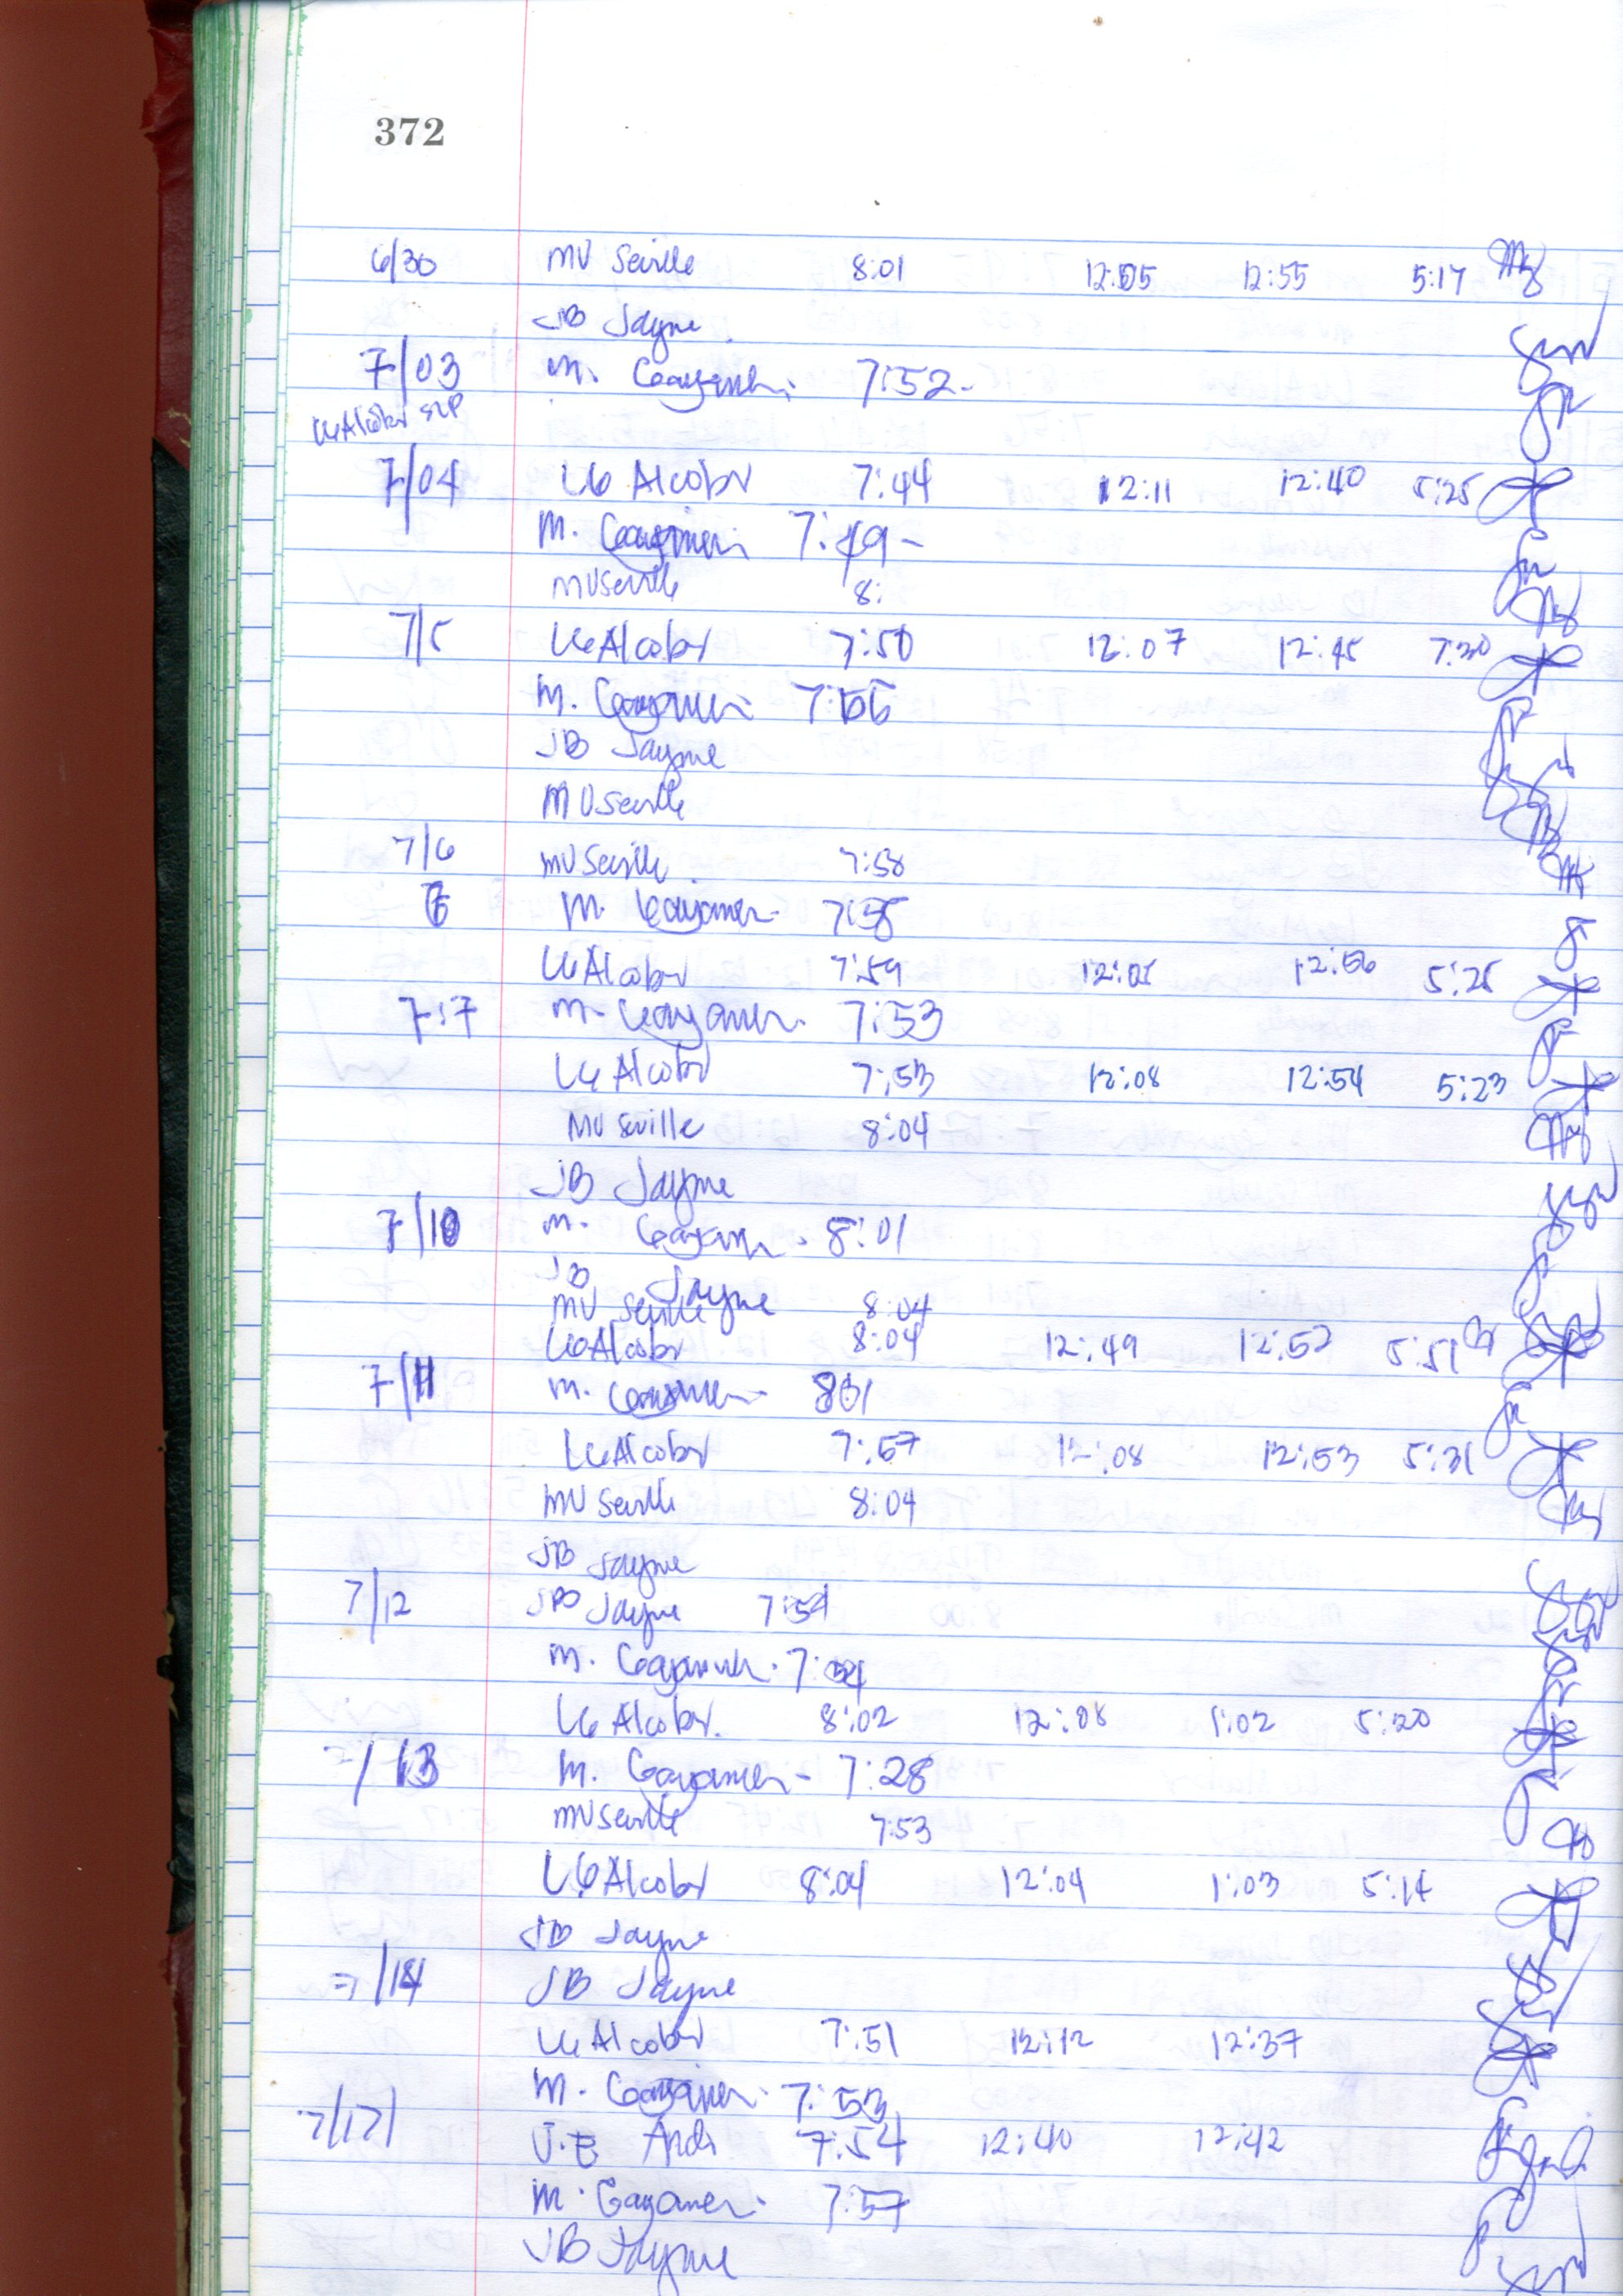 372
6/30 MV Seville 8:01 12:05 12:55 5:17
JB Jayme
7/03 M. Gayamer. 7:52-
LG Alcober
7/04 LG Alcober 7:44 12:11 12:40 5:25
M. Gayamer 7:49-
MV Seville 8:
7/5 LG Alcober 7:50 12:07 12:45 7:30
M. Gayamer
JB Jayme
MV Seville
7/6 MV Seville 7:58
6 M. Gayamer- 7:58
LG Alcober 7:59 12:05 12:56 5:25
7:7 M. Gayamer. 7:53
LG Alcober 7:53 12:08 12:54 5:23
MV Seville 8:04
JB Jayme
7/10 M. Gayamer. 8:01
JB Jayme
MV Seville 8:04
LG Alcober 8:04 12:49 12:52 5:51
7/11 M. Gayamer- 801
LG Alcober 7:57 12:08 12:53 5:31
MV Seville 8:04
JB Jayme
7/12 JB Jayme 7:54
M. Gayamer.
LG Alcober. 8:02 12:08 1:02 5:20
7/13 M. Gayamer- 7:28
MV Seville 7:53
LG Alcober 8:04 12:04 1:03 5:14
JB Jayme
7/14 JB Jayme
LG Alcober 7:51 12:12 12:37
M. Gayamer. 7:53
7/17 J.E 7:54 12:40 12:42
M. Gayamer. 7:57
JB Jayme